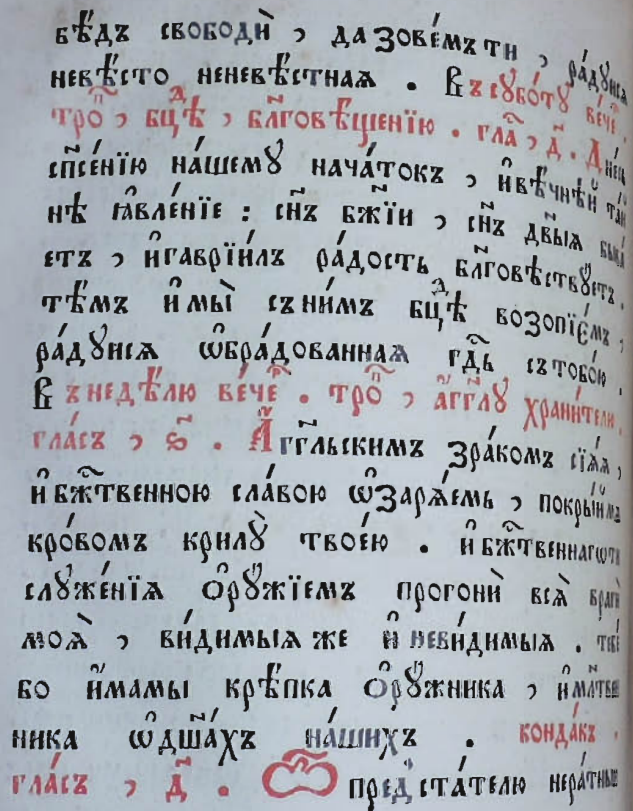 бѣ́дъ свободѝ , да зове́мъ ти , ра́дуйсѧ
невѣ́сто неневѣ́стнаѧ . Въ сꙋбо́тꙋ ве́че҃
тро҃ , бц҃ѣ , бл҃говѣ́щенїю . гла҃ , д҃ . Дне́сь
сп҃се́нїю на́шемꙋ нача́токъ , и҆ вѣ́чнѣй та́и
нѣ ꙗ҆вле́нїе : сн҃ъ бж҃їи , сн҃ъ дв҃ыѧ быва́
етъ , и҆ гаврїи́лъ ра́дость бл҃говѣ́ствꙋетъ .
тѣ́мъ и҆ мы̀ съ ни́мъ бц҃ѣ возопїе́мъ ,
ра́дꙋйсѧ ѡ҆бра́дованнаѧ гд҃ь съ тобо́ю .
Въ недѣ́лю ве́че҃ . тро҃ , а҆́гг҃лꙋ храни́телю .
гла́съ , ѕ҃ . А҆́гг҃льскимъ зра́комъ сїѧ́ѧ ,
и҆ бж҃твенною сла́вою ѡ҆зарѧ́емь , покры́й мѧ
кро́вомъ крилꙋ̀ твоє́ю . и҆ бж҃твеннагѡ ти
слꙋже́нїѧ ѻ҆рꙋ́жїемъ прогонѝ всѧ̀ врагѝ
моѧ̀ , ви́димыѧ же и҆ неви́димыѧ . тебѐ
бо и҆́мамы крѣ́пка ѻ҆рꙋ́жника , и҆ мл҃тве
ника ѡ҆ дш҃а́хъ на́шихъ . конда́къ .
гла́съ , д҃ . пред̾ста́телю нера́тныи